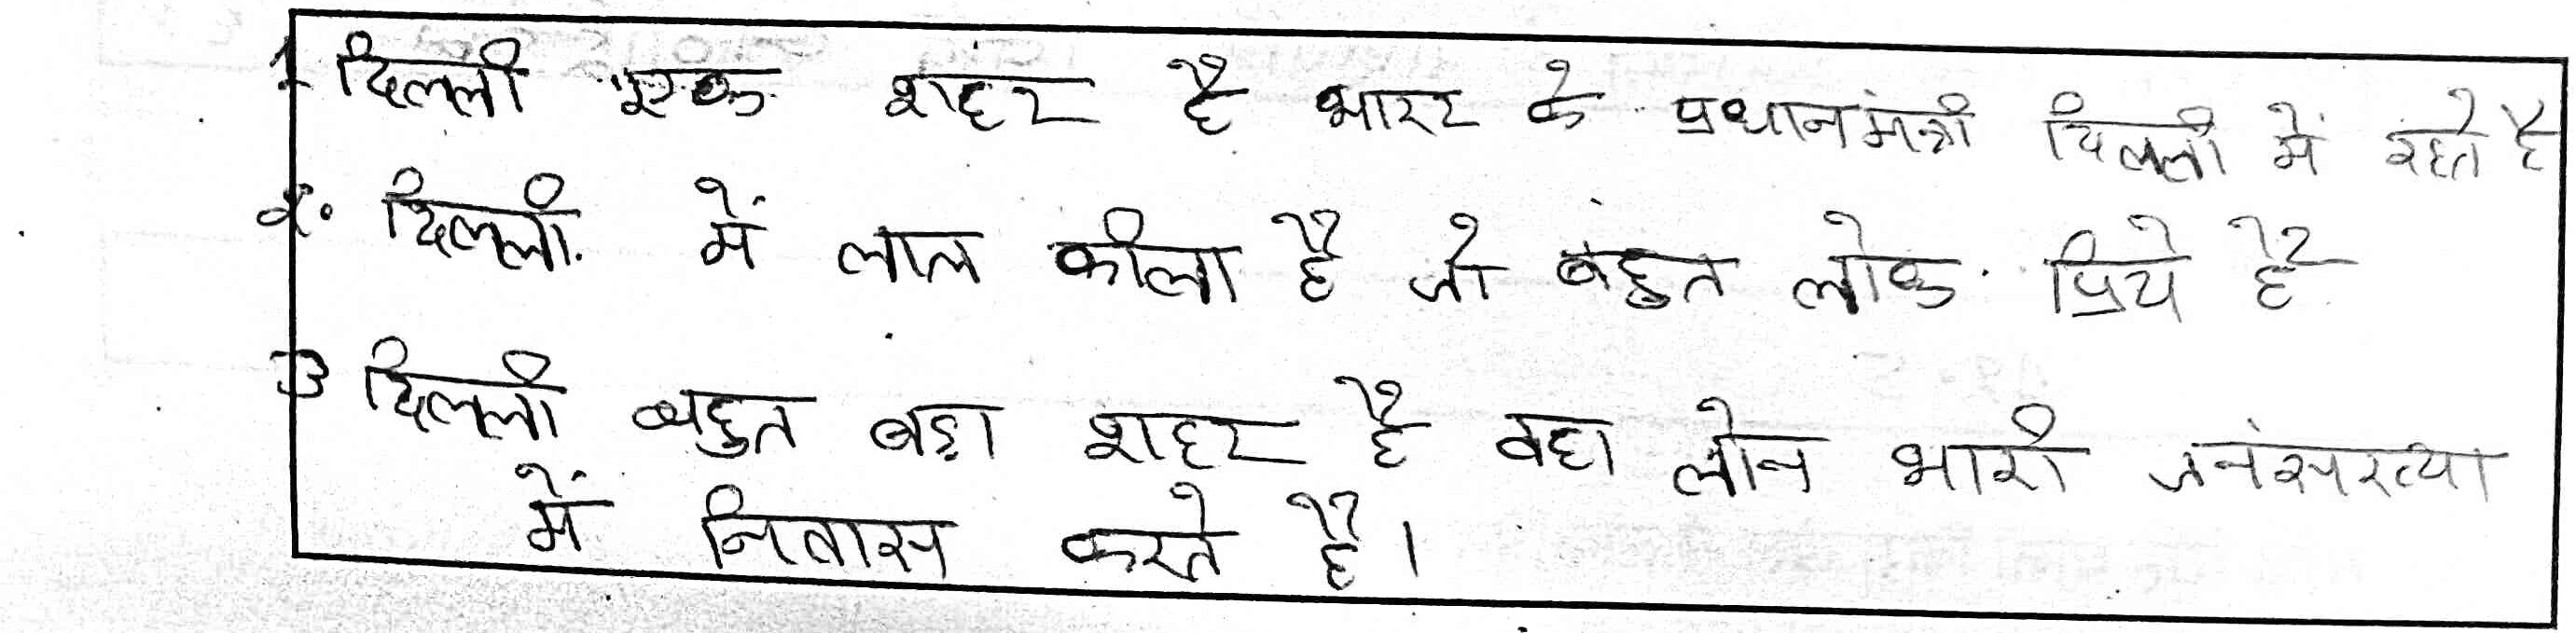 1 दिल्ली एक शहर है भारट के प्रधानमंत्री दिल्ली में रहते है
2. दिल्ली में लाल कीला है जो बहुत लोक प्रिये है
3 दिल्ली बहुत बड़ा शहर है वहा लोग भारी जनंसख्या
में निवास करते है।